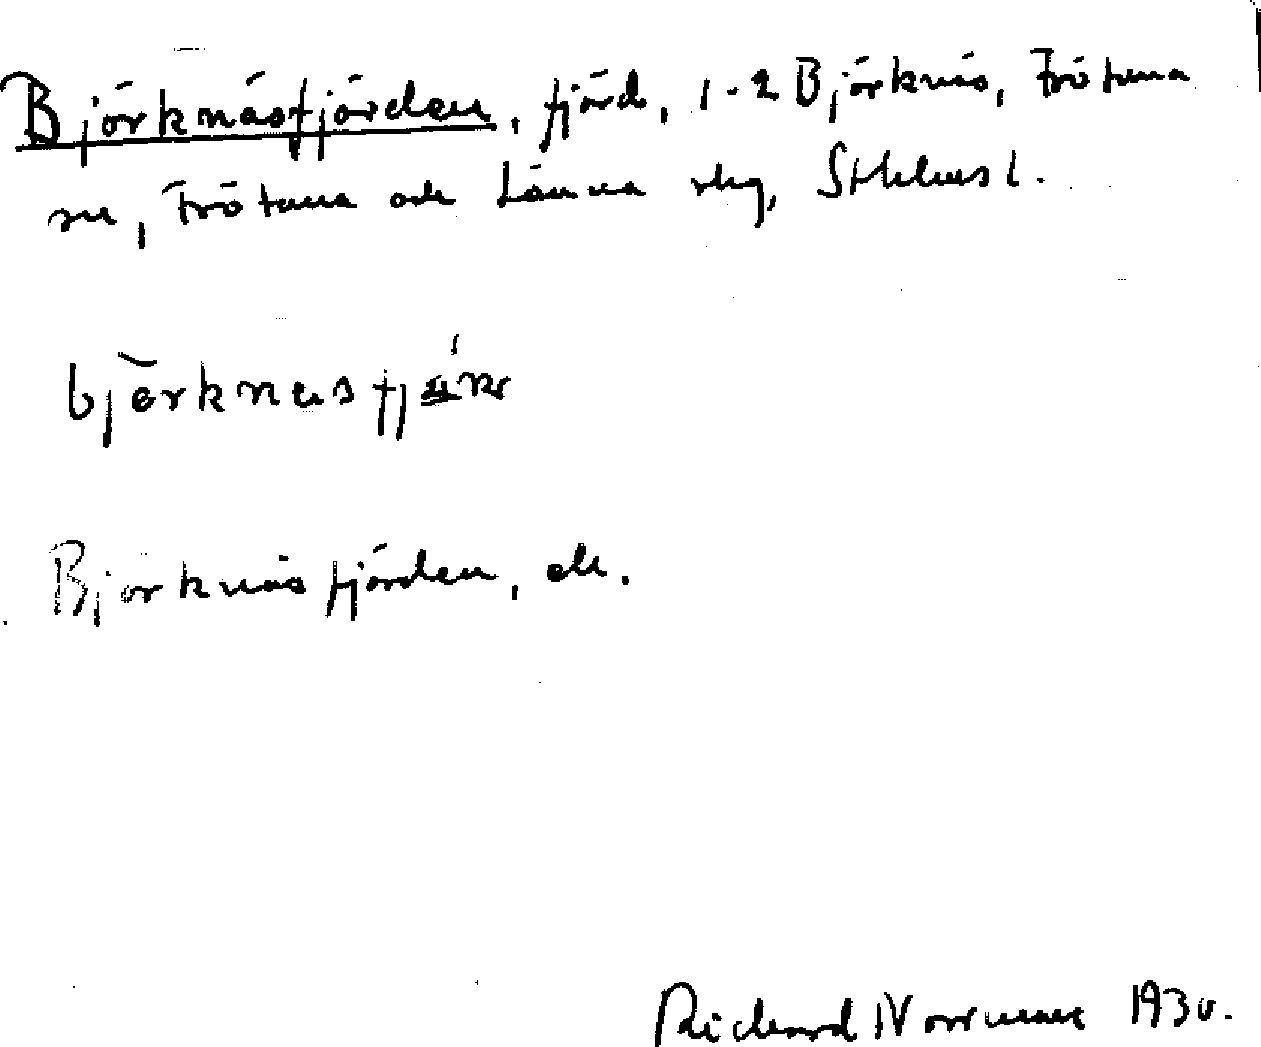 Björknäsfjärden, fjärd, 1-2 Björknäs, Frötuna
sn, Frötuna och Länna skg, Sthlms l.
Björknäsfjärden, ek.
Richard Norrman 1930.